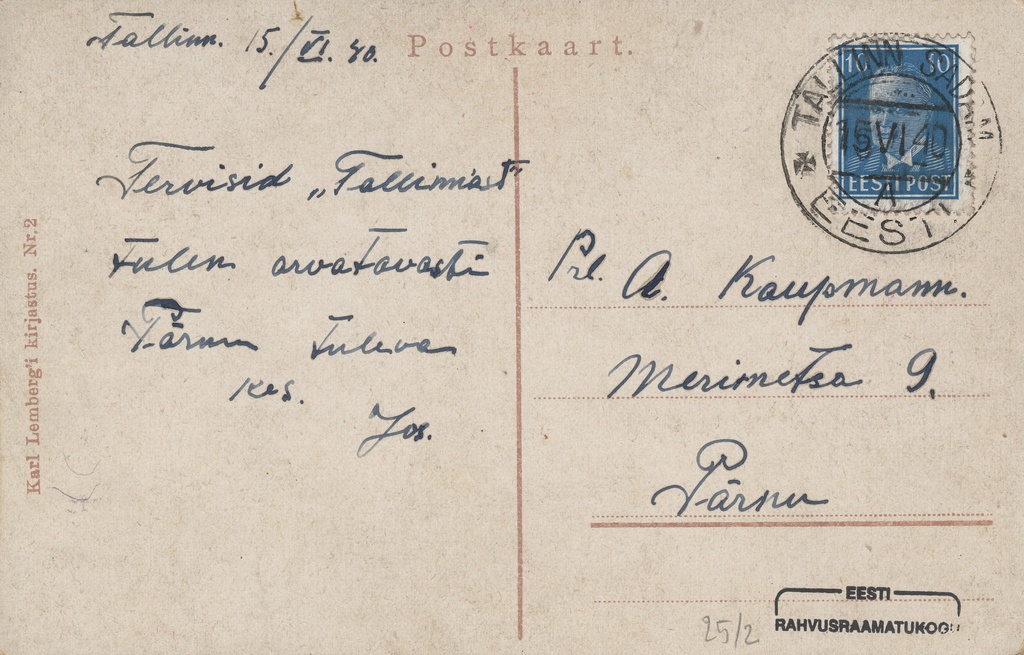 Tallinn. 15./VI. 40.
Postkaart.
10 S 10
EESTI POST
TALLINN SADAM
15 VI 40
A
EESTI
Tervisid „Tallinnast"
tulen arvatavasti
Pärnu tuleva
kes.
Jos.
Prl. A. Kaupmann.
Merimetsa 9.
Pärnu
Karl Lemberg'i kirjastus. Nr. 2
25/2
EESTI
RAHVUSRAAMATUKOGU